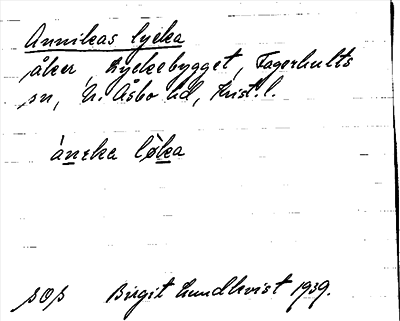 Annikas lycka
åker, Lyckebygget, Fagerhults
sn, N. Åsbo hd, Krist. l.
àneka lø̀ka
sOs Birgit Lundkvist 1939.